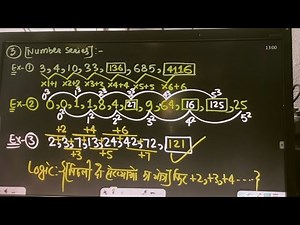 ③ [Number Series] :-
Ex-① 3, 4, 10, 33, 136, 685, 4116
x1+1 x2+2 x3+3 x4+4 x5+5 x6+6
0³ 1³ 2³ 3³ 4³ 5³
Ex-② 0, 0, 1, 1, 8, 4, 27, 9, 64, 16, 125, 25
0² 1² 2² 3² 4² 5²
+2 +4 +6
Ex-③ 2, 3, 7, 13, 24, 42, 72, 121
+3 +5 +7
Logic:- {पिछली दो संख्याओं का योग फिर +2, +3, +4 ....}